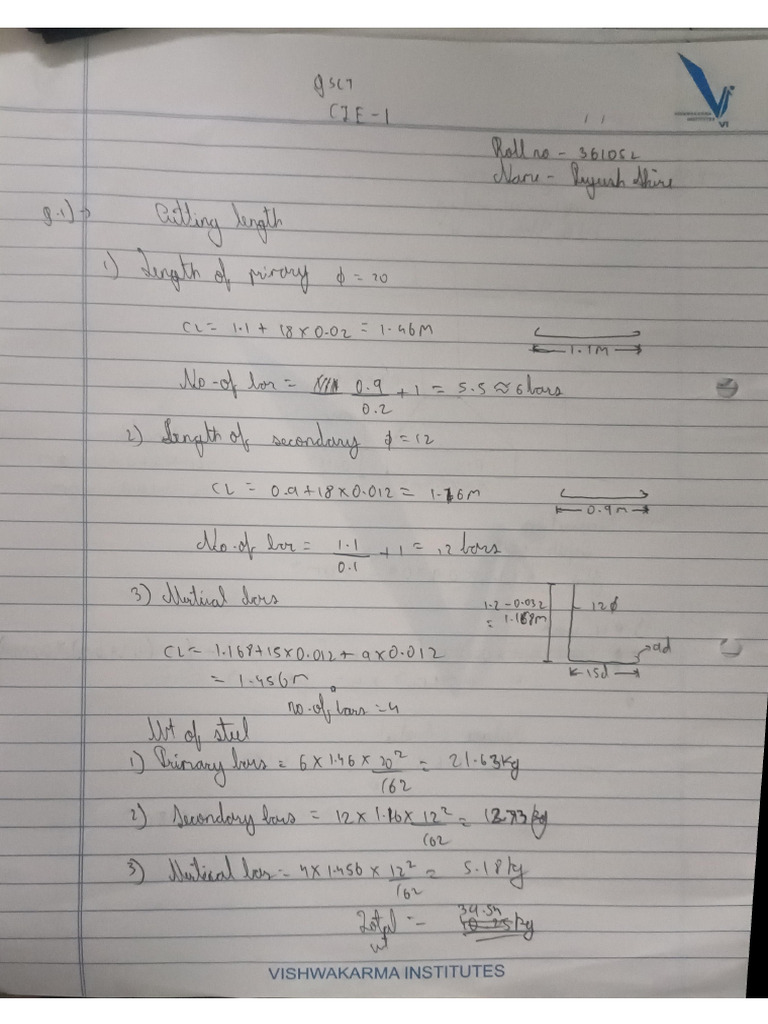 CIE-1
VI
Roll no - 361052
Name -
Q.1)→ Cutting length
1) Length of pirary ϕ = 20
CL = 1.1 + 18 × 0.02 = 1.46 M
1.1M
No-of bar = 0.9/0.2 + 1 = 5.5 ≈ 6 bars
2) Length of secondary ϕ = 12
CL = 0.9 + 18 × 0.012 = 1.16 m
0.9 m
No. of bar = 1.1/0.1 + 1 = 12 bars
3) Vertical bars
1.2 - 0.032
= 1.168m
12ϕ
9d
15d
CL = 1.168 + 15 × 0.012 + 9 × 0.012
= 1.456 m
no. of bars = 4
Wt of steel
1) Primary bars = 6 × 1.46 × 20²/162 = 21.63 kg
2) Secondary bars = 12 × 1.16 × 12²/162 =
3) Vertical bar = 4 × 1.456 × 12²/162 = 5.18 kg
Total wt :- kg
VISHWAKARMA INSTITUTES